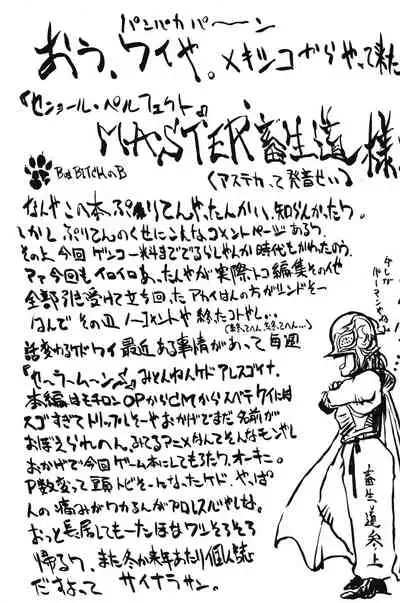 パンパカパーーン
おう、ワイや。メキシコからやって来た
『センョール・ペルフェクト』
MASTER 畜生道 様
BはBITCHのB
(アステカ、て発音せい)
なんやこの本、ぷりてんやったんかい、知らんかったワ。
しかし ぷりてんのくせにこんなコメントページあるワ、
その上 今回 ゲンコー料まででるらしやんか 時代もかわたのう。
マァ今回もイロイロあったんやが実際トコ編集その他
全部引き受けて立ち回った アカイはんの方がシンドそー
なんで その辺 ノーコメントや 終わたコトやし‥
(終てへん、終てへん…)
話変わるケドワイ 最近 ある事情があって 毎週
『セーラームーン』 みとんねんケド アレスゴイナ、
本編はモチロン OPからCMから スベテ ワイには
スゴすぎて トリップしそーや おかげでまだ 名前が
おぼえられへん、みてるアニメなんてそんなモンやし
おかげで今回 ゲーム本にしてもろたワ、オーキニ。
P数変って 頭トビそーなったケド、やっぱ
人の痛みがワカるんがプロレスラーやしな。
おっと長居してもーた ほな ワシそろそろ
帰るワ、また冬か来年あたり個人誌
だすよって サイナラサン。
畜生道参上